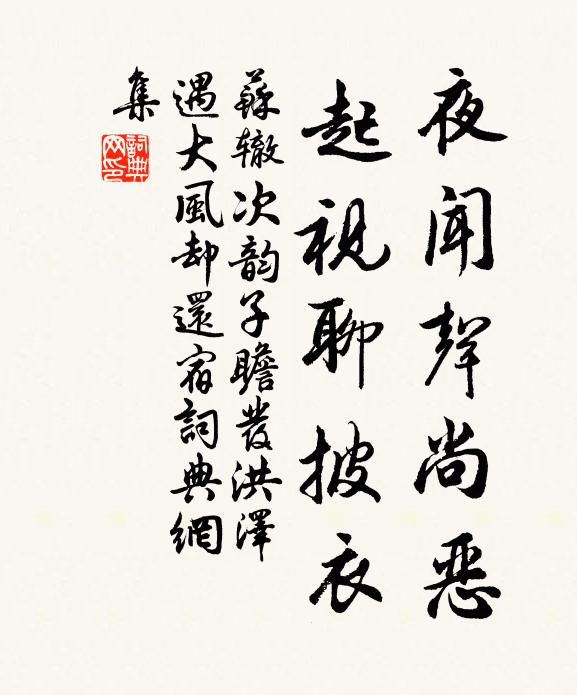 夜聞聲尚恶
起視聊披衣
蘇辙次韵子瞻發洪澤
遇大風却還宿詞典網
集
詞典網印